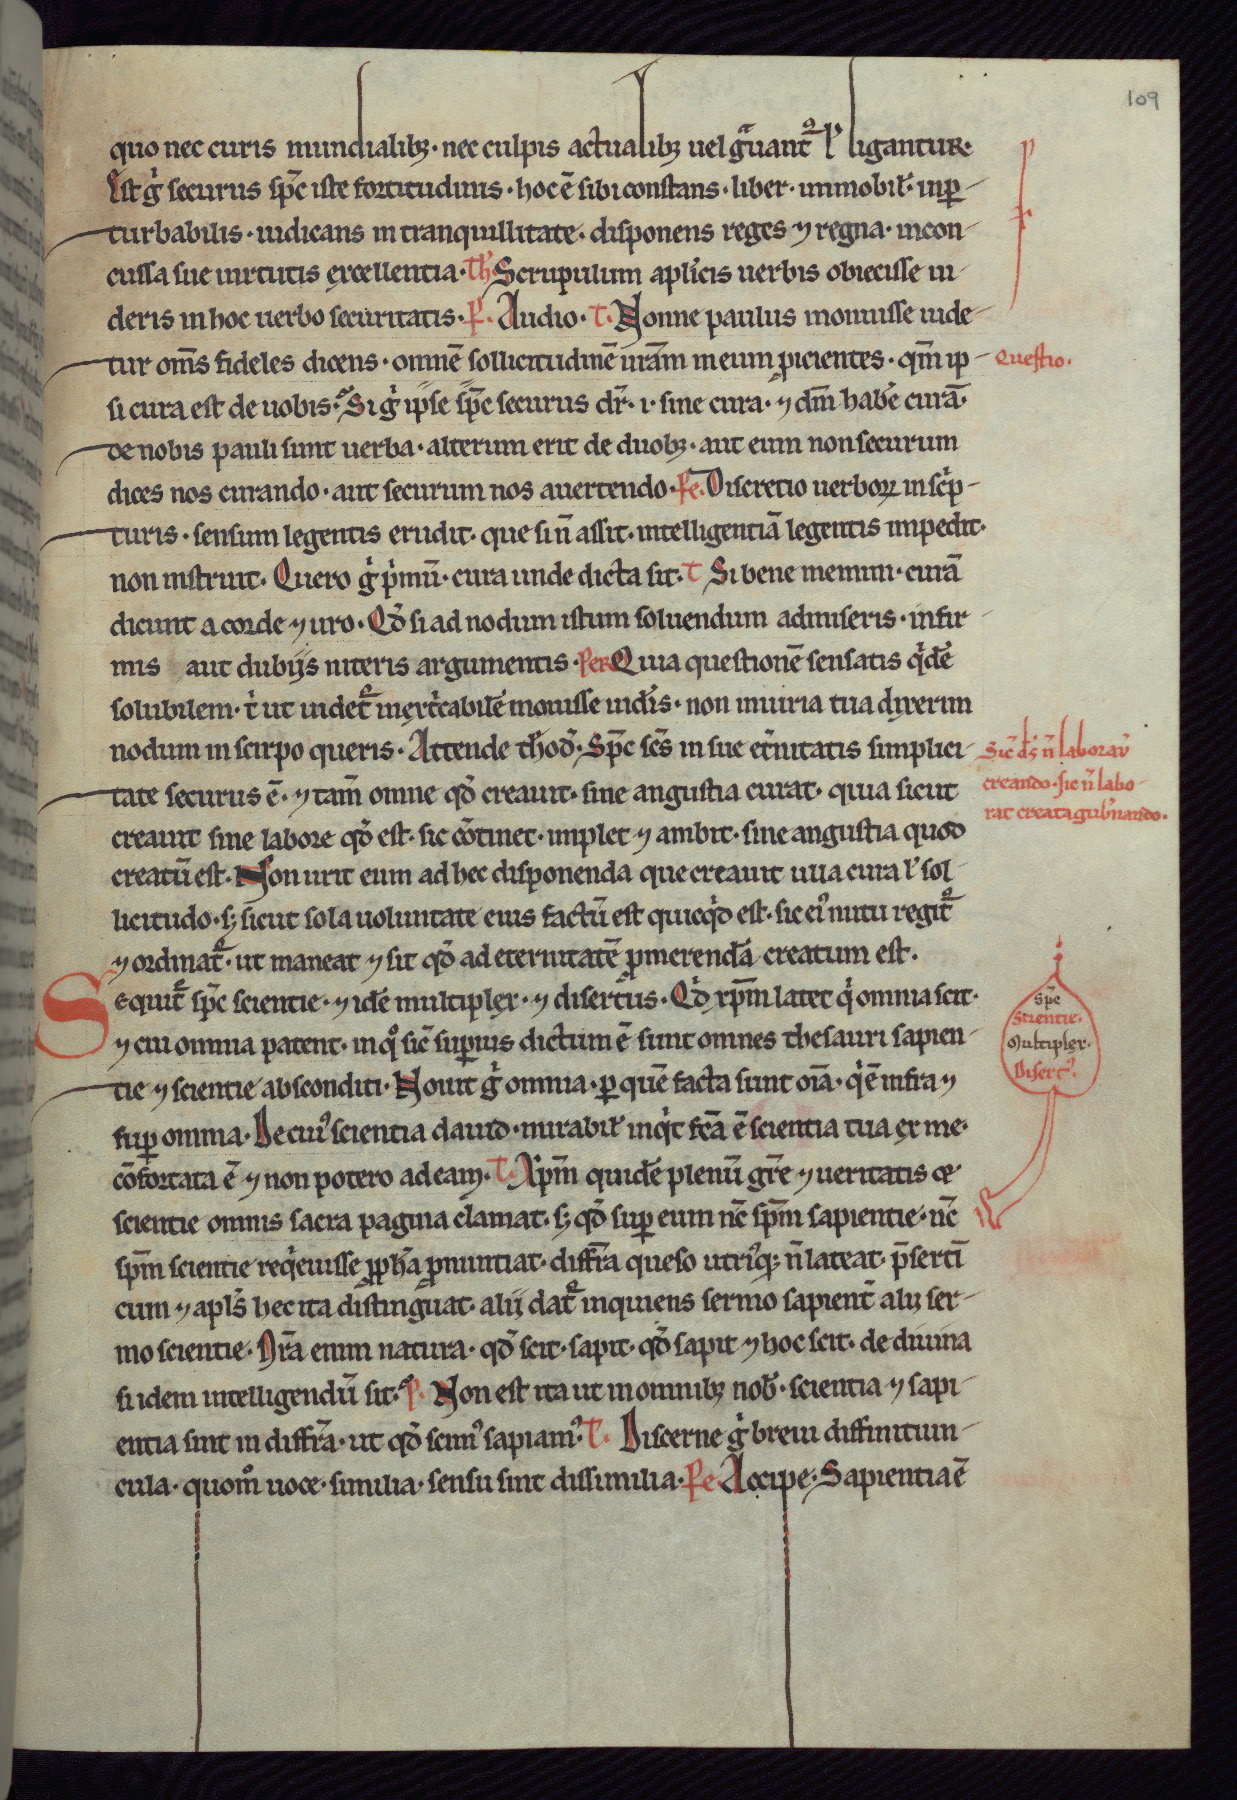 109
quo nec curis mundialib; · nec culpis actualib; uel g̃uant᷑ ł ligantur.
Est g̊ securus sp̄c iste fortitudinis · hoc ē sibi constans · liber · immobil' · inp̱-
turbabilis · iudicans in tranquillitate · disponens reges ⁊ regna · incon-
cussa sue uirtutis excellentia · Th̓ Scrupulum apl̓icis uerbis obiecisse ui-
deris in hoc uerbo securitatis · P. Audio · T. Nonne paulus monuisse uide-
tur om̄s fideles dicens · omnē sollicitudinē ur̄am in eum ꝓicientes · qm̄ ip-
Questio.
si cura est de uobis. Si g̊ ipse sp̄c securus dr̄ · i · sine cura · ⁊ dm̄ habēe curā·
de nobis pauli sunt uerba · alterum erit de duob; · aut eum non securum
dices nos curando · aut securum nos auertendo. Pe. Discretio uerboꝝ in sc̓p-
turis · sensum legentis erudit · que si n̄ assit · intelligentiā legentis impedit ·
non instruit. Quero g̊ p̓mū · cura unde dicta sit. T Si bene memini · curā
dicunt a corde ⁊ uro · Qd̓ si ad nodum istum soluendum admiseris · infir-
mis aut dubijs niteris argumentis · Per Quia questionē sensatis q̓dē
solubilem · t̓ ut uidet᷑ inext̓cabilē mouisse uidĩs · non iniuria tua dixerim
nodum in scirpo queris · Attende theod̓. Sp̄c sc̄s in sue et̓nitatis simplici-
Sic̄ ds̄ n̄ laborau̓
creando · sic n̄ labo-
rat creata gub̓nando.
tate securus ē · ⁊ tam̄ omne qd̓ creauit · sine angustia curat · quia sicut
creauit sine labore qd̓ est · sic cōtinet · implet ⁊ ambit · sine angustia quod
creatū est. Non urit eum ad hec disponenda que creauit ulla cura ł sol-
licitudo · s; sicut sola uoluntate eius factū est quicq̓d est · sic ei᷒ nutu regit᷑
⁊ ordinat᷑ · ut maneat ⁊ sit qd̓ ad eternitatē ꝓmerendā creatum est.
Sequit᷑ sp̄c scientie · ⁊ idē multiplex · ⁊ disertus · Qd̓ xp̄m latet q̓ omnia scit ·
sp̄c
scientie.
Multiplex.
Disert᷒.
⁊ cui omnia patent · in qͦ sic̄ superius dictum ē sunt omnes thesauri sapien-
tie ⁊ scientie absconditi · Nouit g̊ omnia · ꝑ quē facta sunt oīa · q̓ ē infra ⁊
suꝑ omnia · De cui᷒ scientia dauid · mirabil' inq̓t fc̄a ē scientia tua ex me ·
cōfortata ē ⁊ non potero ad eam · T. Xp̄m quidē plenū gr̄e ⁊ ueritatis
scientie omnis sacra pagina clamat · s; qd̓ suꝑ eum nc̄ sp̄m sapientie · nc̄
sp̄m scientie req̓euisse ꝓph̄a ꝓnuntiat · diffr̄a queso utri᷒q; n̄ lateat · p̄sertī
cum ⁊ apl̄s hec ita distinguat · alij dat᷑ inquiens sermo sapient̓ alij ser-
mo scientie · Nr̄a enim natura · qd̓ scit · sapit · qd̓ sapit ⁊ hoc scit · de diuina
si idem intelligendū sit. P. Non est ita ut in omnib; nob̓ · scientia ⁊ sapi-
entia sint in diffr̄a · ut qd̓ scim᷒ sapiam᷒. T. Discerne g̊ breui diffinitiun-
cula · quom̊ uoce · similia · sensu sint dissimilia. Pe. Accipe. Sapientia ē